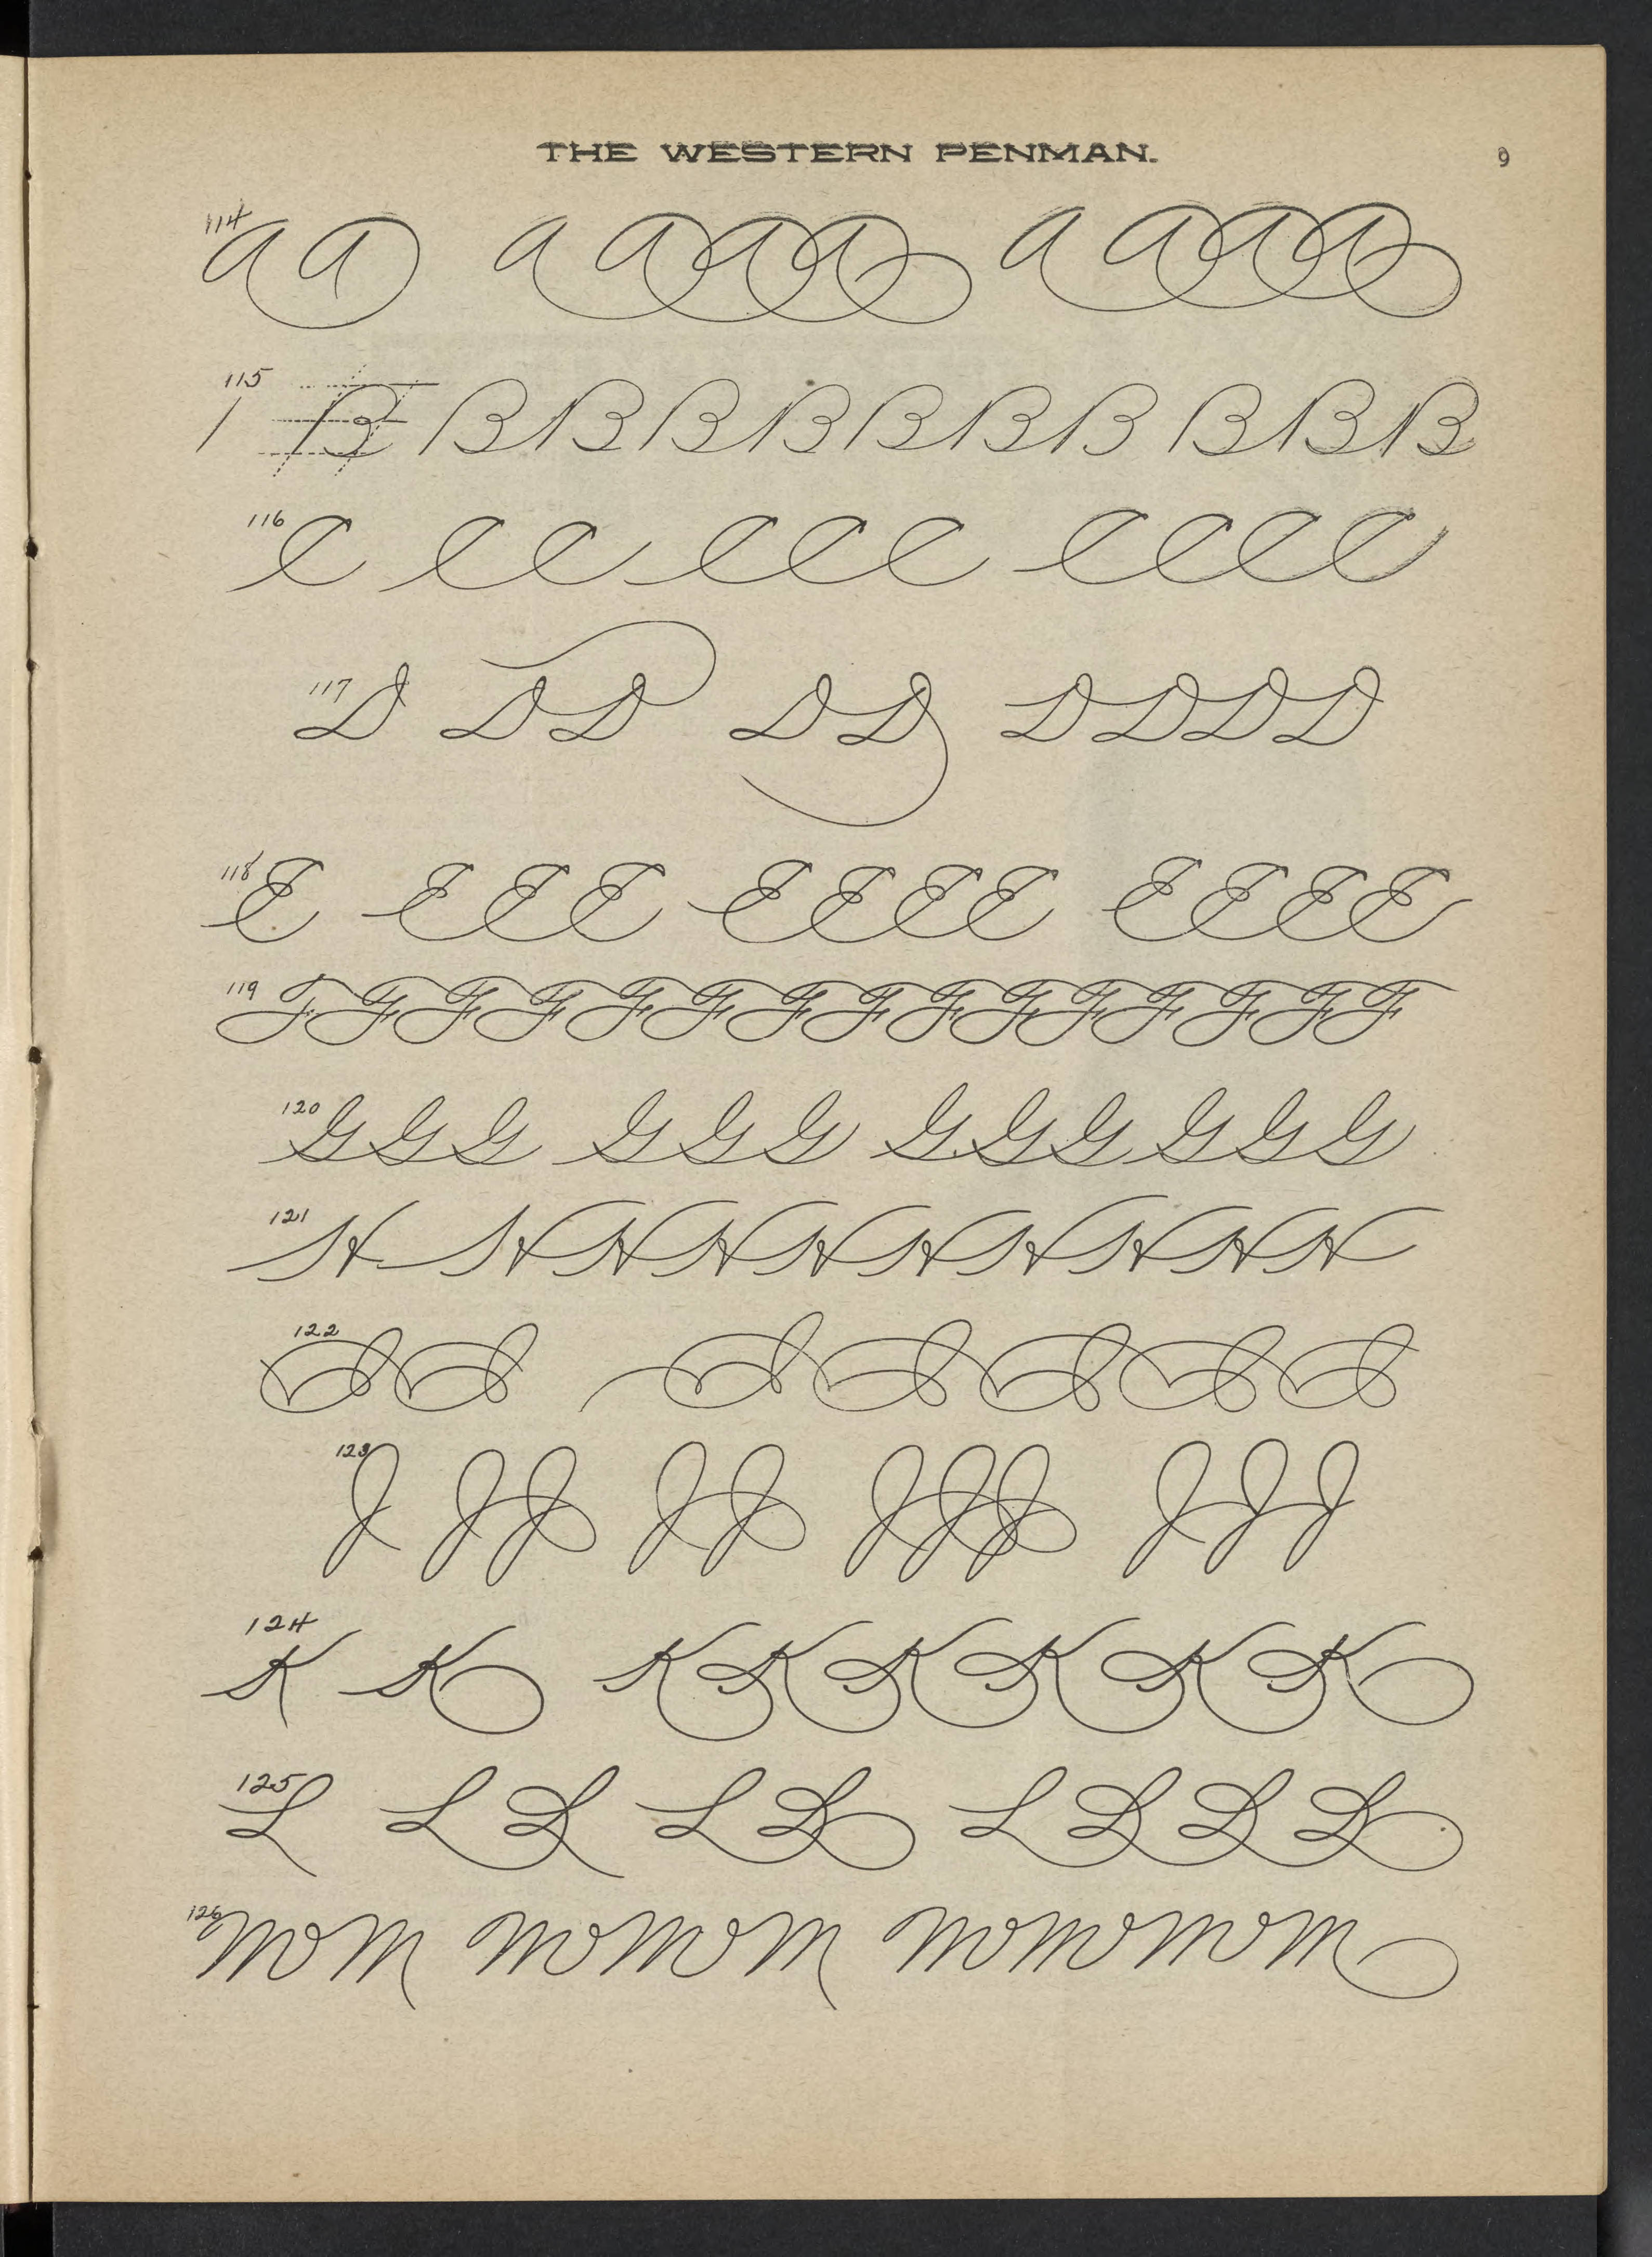 THE WESTERN PENMAN. 9
114 A A A A A A A A A A
115 B B B B B B B B B B B
116 C C C C C C C C C C
117 D D D D D D D D D
118 E E E E E E E E E E E E
119 F F F F F F F F F F F F F F F
120 G G G G G G G G G G G G
121 H H H H H H H H H H
122 I I I I I I I
123 J J J J J J J J J J J
124 K K K K K K K K
125 L L L L L L L L L
126 M O M M O M O M M O M O M O M